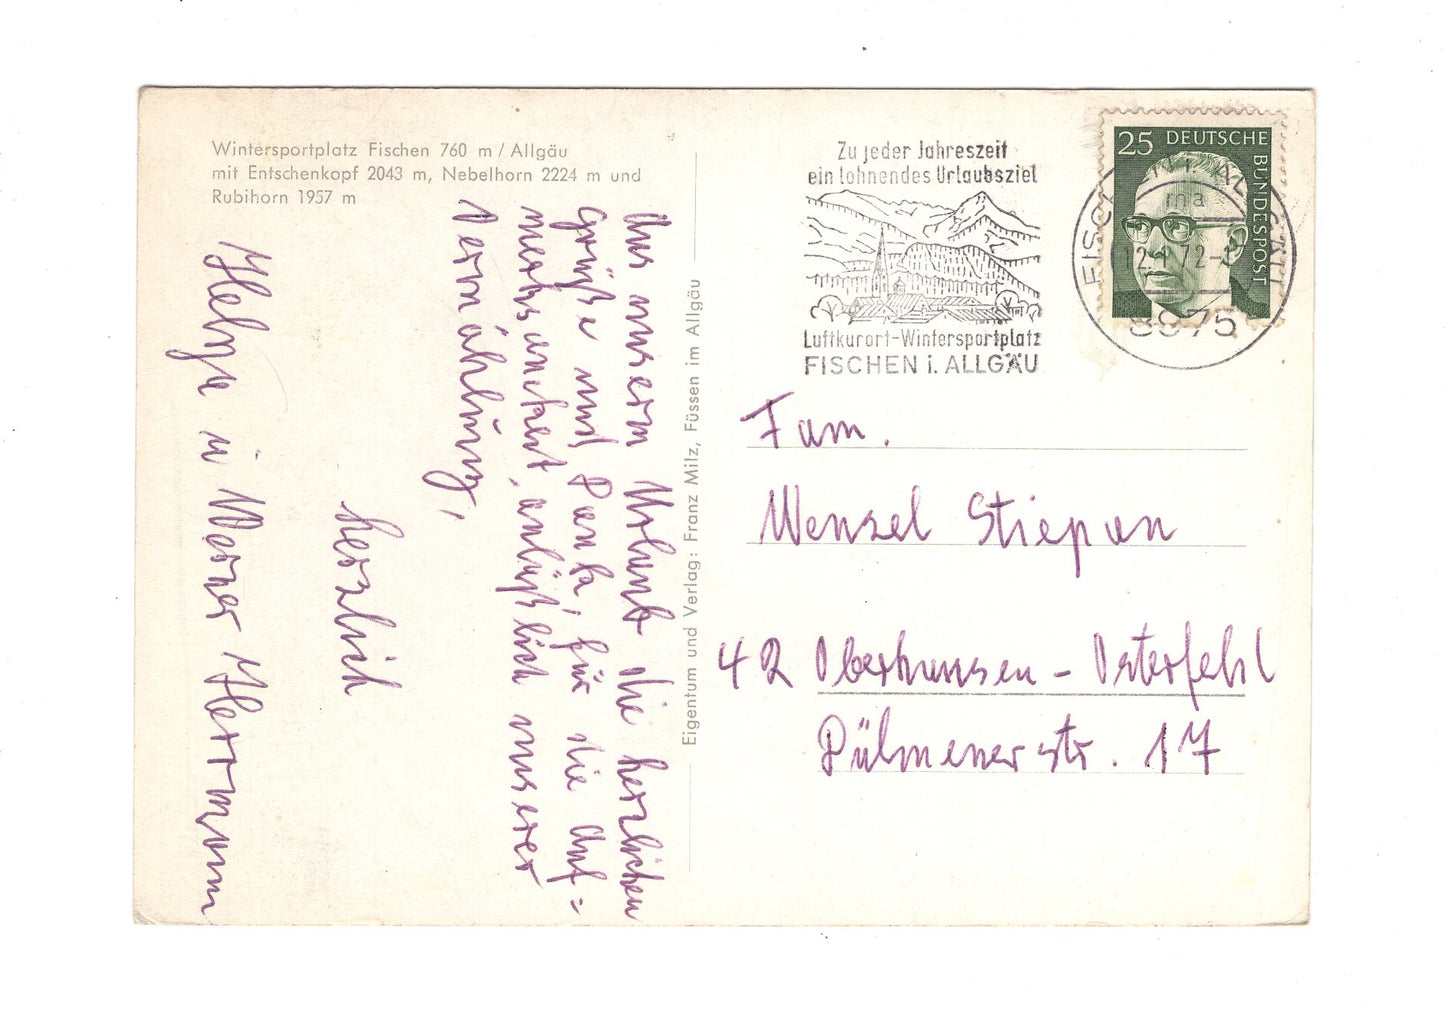 Wintersportplatz Fischen 760 m / Allgäu
mit Entschenkopf 2043 m, Nebelhorn 2224 m und
Rubihorn 1957 m
Aus unserm Urlaub die herzlichen
Grüße und Dank, für die Auf=
merksamkeit, anläßlich unserer
Vermählung,
herzlich
Helga u. Werner Herrmann
Eigentum und Verlag: Franz Milz, Füssen im Allgäu
Zu jeder Jahreszeit
ein lohnendes Urlaubsziel
Luftkurort-Wintersportplatz
FISCHEN i. ALLGÄU
25 DEUTSCHE
BUNDESPOST
FISCHEN i. ALLGÄU
ma
12.-1.72-
8975
Fam.
Wenzel Stiepan
42 Oberhausen - Osterfeld
Dülmener str. 17